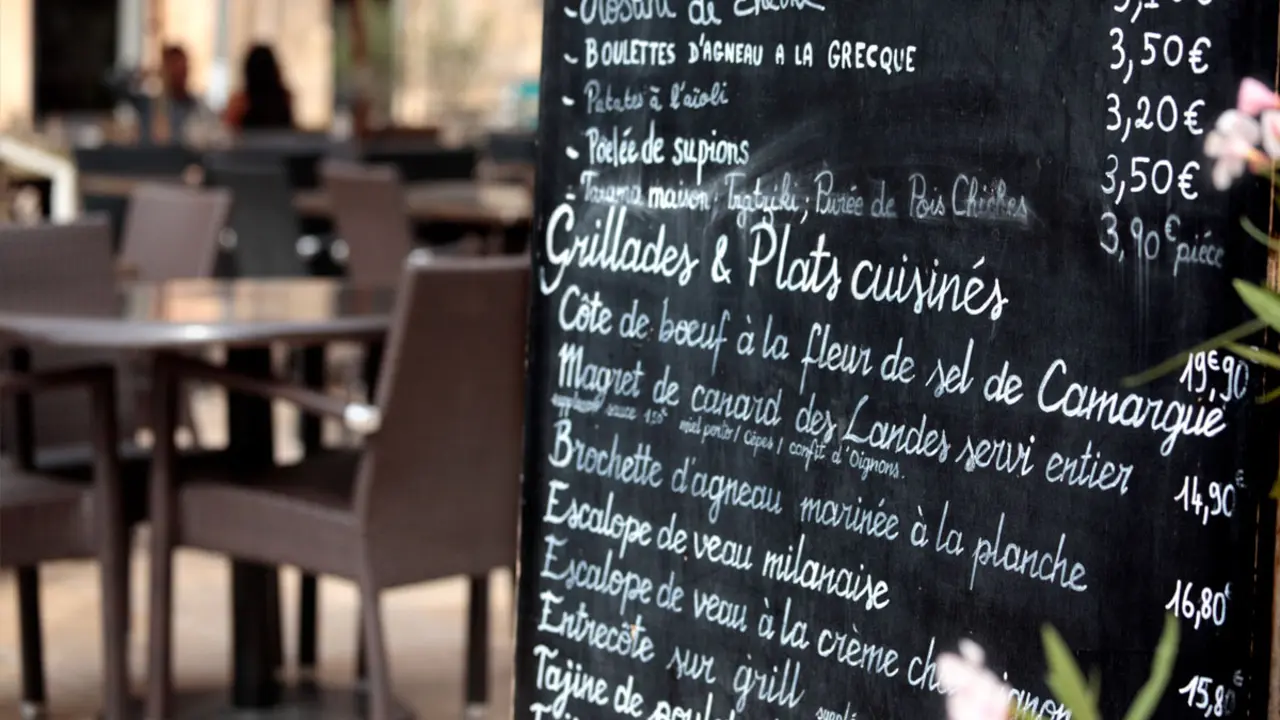 - Croustill de chèvre
- BOULETTES D'AGNEAU A LA GRECQUE 3,50€
- Patates à l'aïoli 3,20€
- Poêlée de supions 3,50€
- Tarama maison; Tzatziki; Purée de Pois Chiches 3,90€ pièce
Grillades & Plats cuisinés
Côte de boeuf à la fleur de sel de Camargue 19€90
Magret de canard des Landes servi entier 14,90€
supplément sauce 1,50€ miel porto / Cèpes / confit d'Oignons.
Brochette d'agneau marinée à la planche 16,80€
Escalope de veau milanaise 15,8
Escalope de veau à la crème ch
Entrecôte sur grill
Tajine de poulet